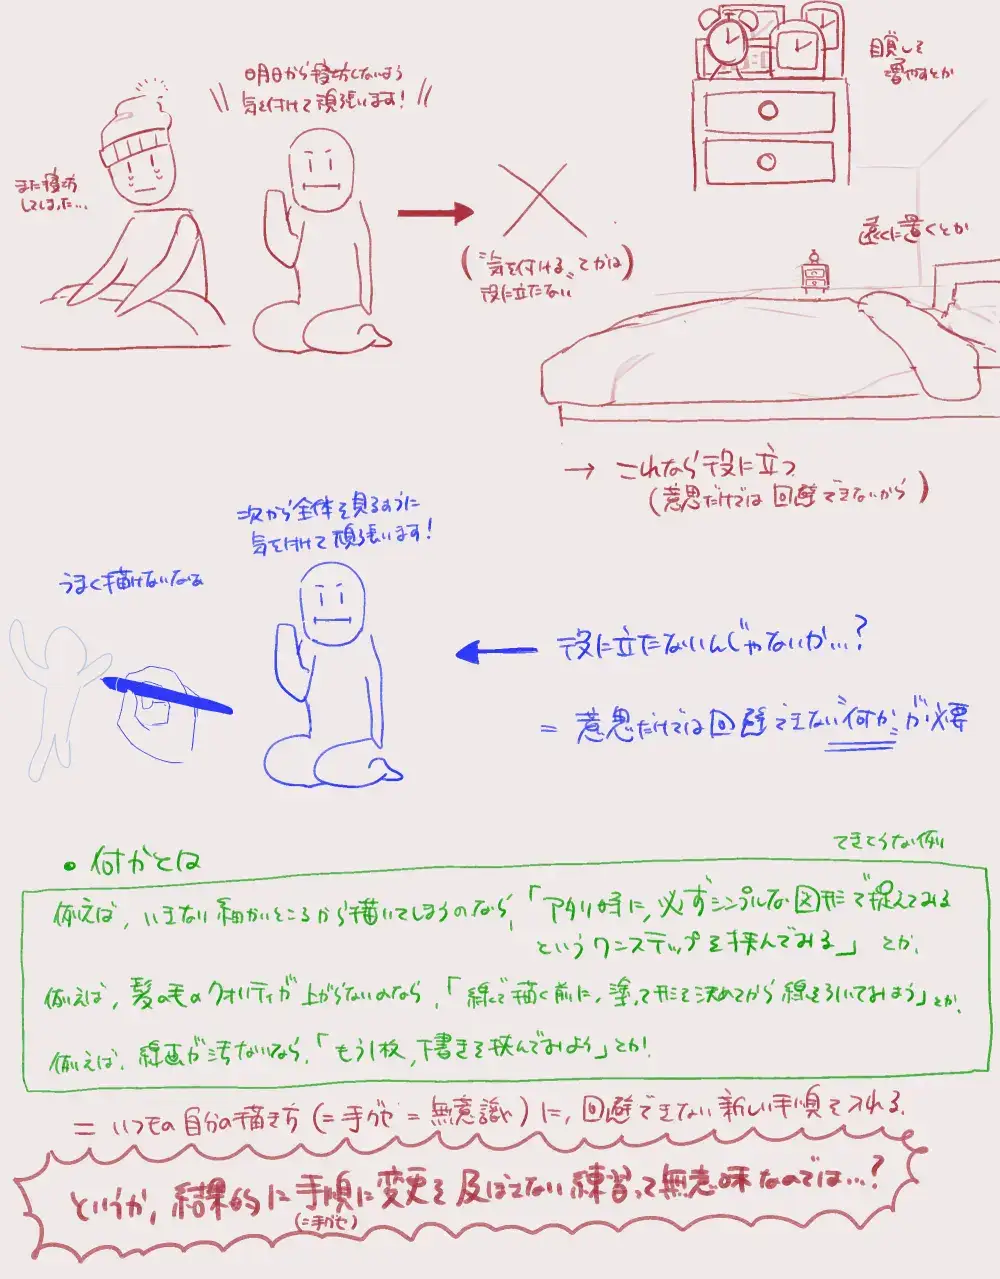 また寝坊
してしまった…
明日から寝坊しないよう
気を付けて頑張います!
("気を付ける"とかは
役に立たない)
目覚して
増やすとか
遠くに置くとか
→ これなら役に立つ
(意思だけでは回避できないから)
うまく描けないなぁ
次から全体を見るように
気を付けて頑張います!
役に立たないんじゃないか…?
= 意思だけでは回避できない"何か"が必要
• 何かとは
てきとうな例
例えば、いきなり細かいところから描いてしまうのなら、「アタリ時に、必ずシンプルな図形で捉えてみる
というワンステップを挟んでみる」とか、
例えば、髪の毛のクオリティが上がらないのなら、「線で描く前に、塗って形を決めてから線を引いてみよう」とか、
例えば、線画が汚いなら、「もう1枚、下書きを挟んでみよう」とか!
= いつもの自分の描き方(=手グセ=無意識)に、回避できない新しい手順を入れる。
というか、結果的に手順に変更を及ぼさない練習って無意味なのでは…?
(=手グセ)